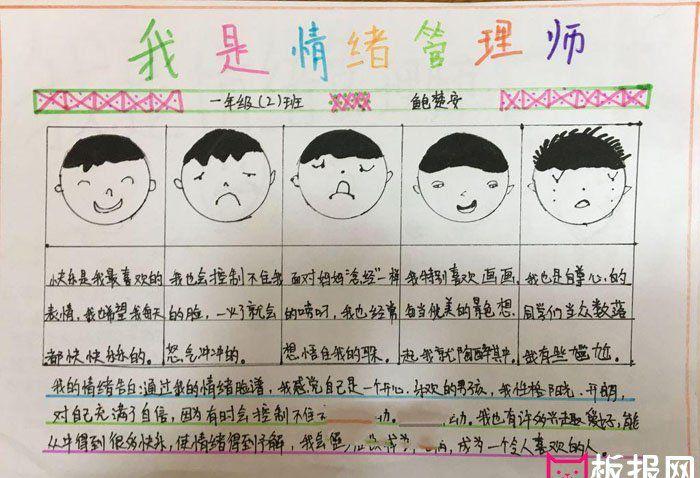 我是情绪管理师
一年级(2)班 鲍楚安
快乐是我最喜欢的
表情,我也希望我每天
都快快乐乐的。
我也会控制不住我
的脸,一火了就会
怒气冲冲的。
面对妈妈“念经”一样
的唠叨,我也经常
想捂住我的耳朵。
我特别喜欢画画,
每当优美的景色想
起我就陶醉其中。
我也是自尊心的
同学们当众数落
我有些尴尬。
我的情绪告白:通过我的情绪脸谱,我感觉自己是一个开心、乐观的男孩,我性格阳光、开朗,
对自己充满了自信,因为有时会控制不住 动。 动。我也有许多兴趣爱好,能
从中得到很多快乐,使情绪得到予解,我会 成为一个令人喜欢的人。
板报网